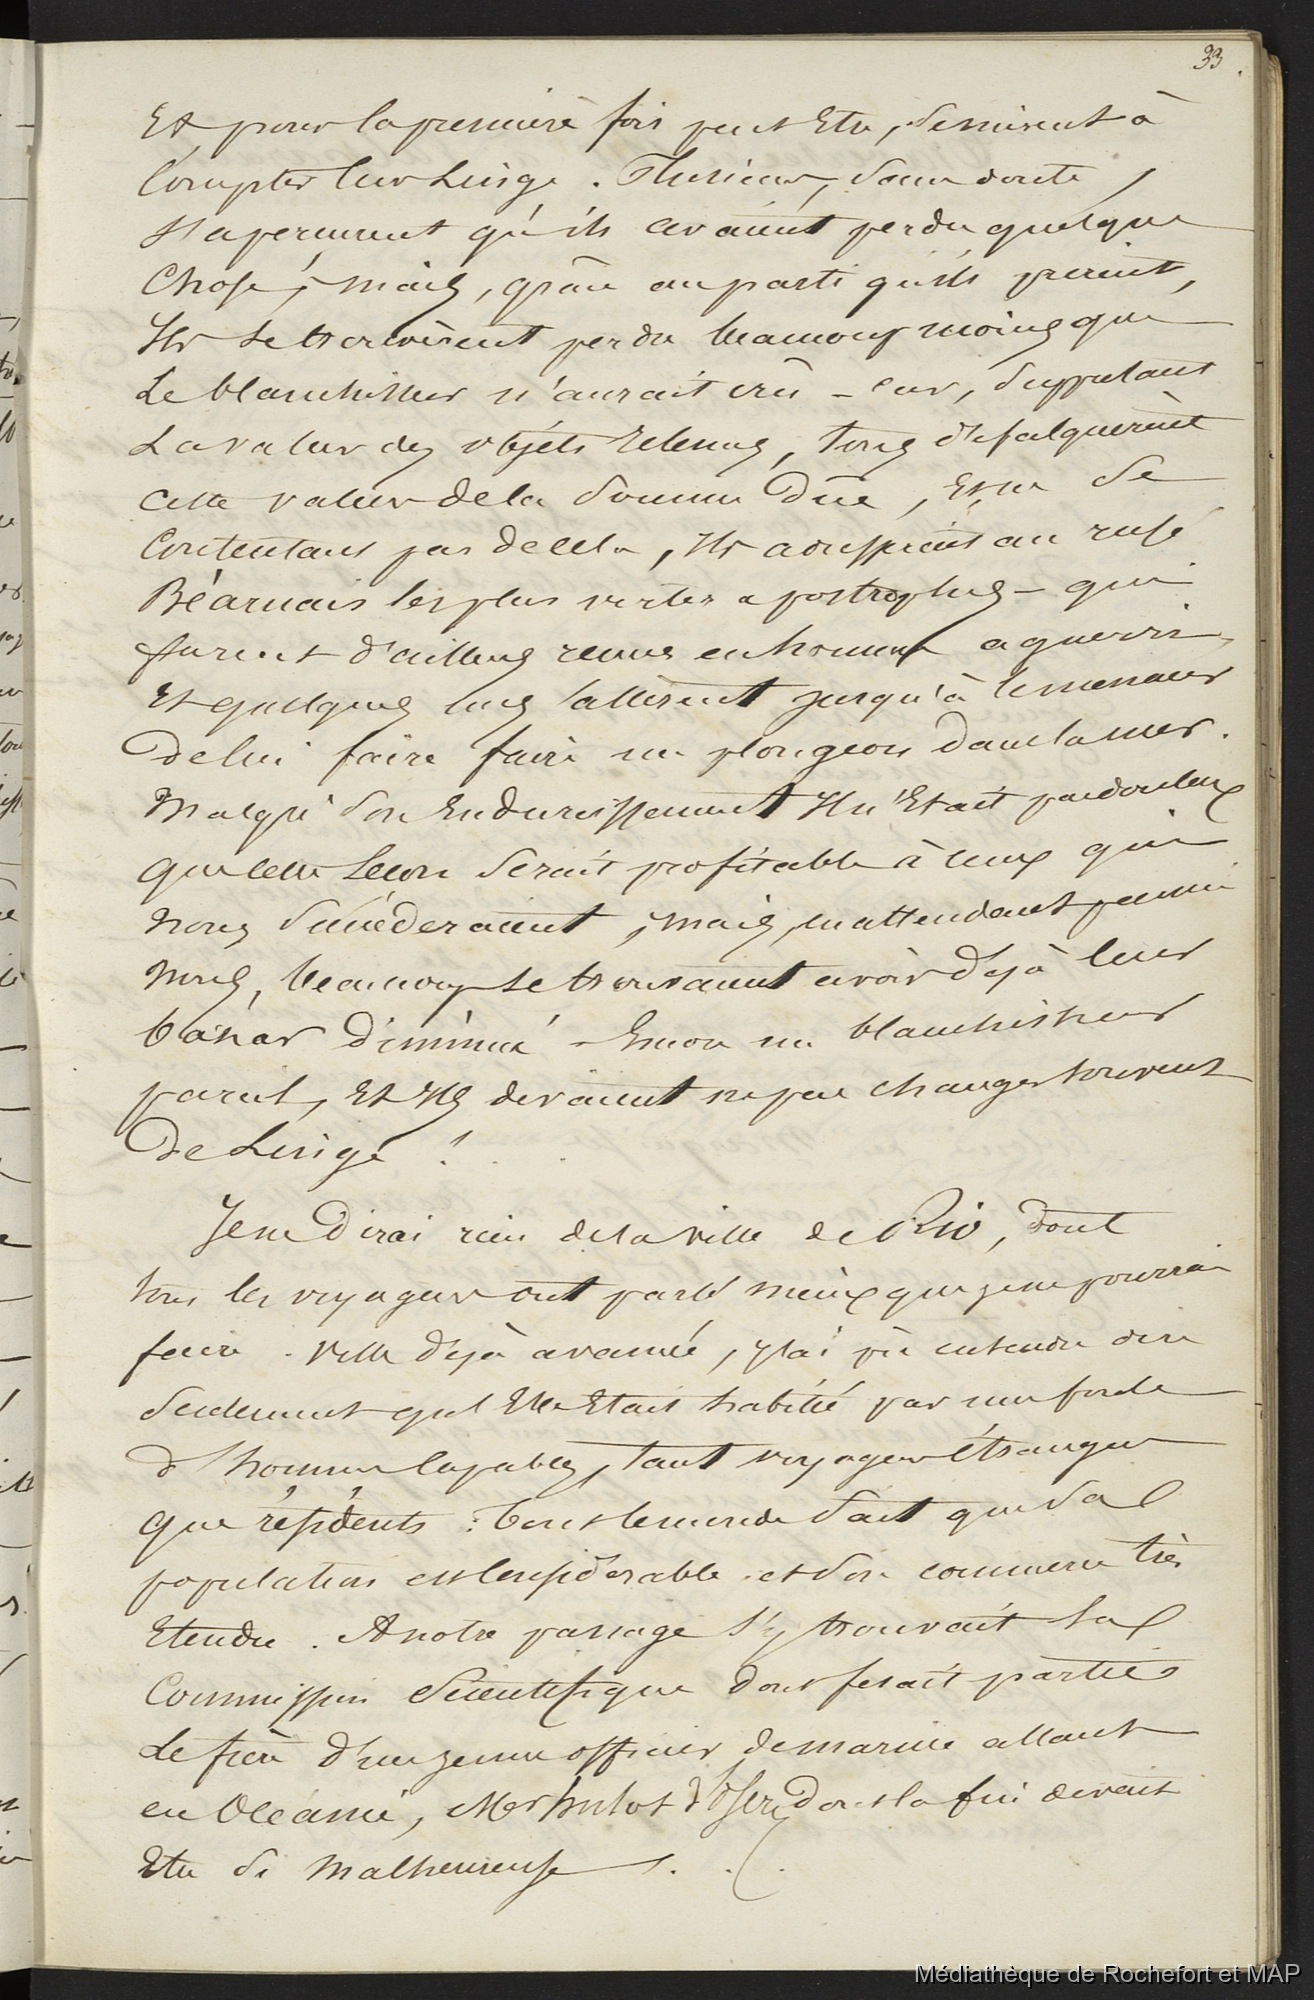 33.
Et pour la première fois peut Etre, se mirent à
Compter leur Linge. Plusieurs, sans doute,
s'aperçurent qu'ils avaient perdu quelque
Chose; mais, grâce au parti qu'ils prirent,
Ils se trouvèrent perdre beaucoup moins que
Le blanchisseur n'aurait crû - car, supputant
La valeur des objets retenus, tous défalquèrent
cette valeur de la somme Dûe, Et ne se
Contentant pas de cela, Ils adressèrent au rusé
Béarnais les plus vertes apostrophes - qui
furent d'ailleurs reçues en homme aguerri,
Et quelques uns allèrent jusqu'à le menacer
De lui faire faire un plongeon dans la mer.
Malgré son Endurcissement Il n'Etait pas douteux
que cette Leçon serait profitable à ceux qui
nous succéderaient; mais, en attendant parmi
nous, beaucoup se trouvaient avoir déjà leur
bazar Diminué - Encore un blanchisseur
pareil, Et Ils devaient ne pas changer souvent
De Linge! . .
Je ne Dirai rien de la Ville de Rio, Dont
tous les voyageurs ont parlé mieux que je ne pourrai
faire. Ville déjà avancée, j'ai pû entendre dire
seulement qu'Elle Etait habitée par une foule
d'hommes Capables, tant voyageurs étrangers
que résidents: tout le monde sait que sa
population est Considérable et son commerce très
Etendu. A notre passage s'y trouvait la
Commission Scientifique dont fesait partie
Le frère d'un jeune officier de marine allant
en Océanie, Mr hulot d'Osery Dont la fin devait
Etre si malheureuse . . .
Médiathèque de Rochefort et MAP